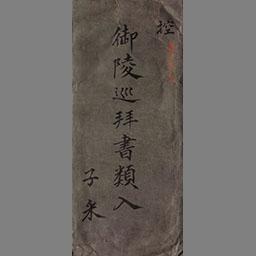 控
御陵巡拝書類入
子来